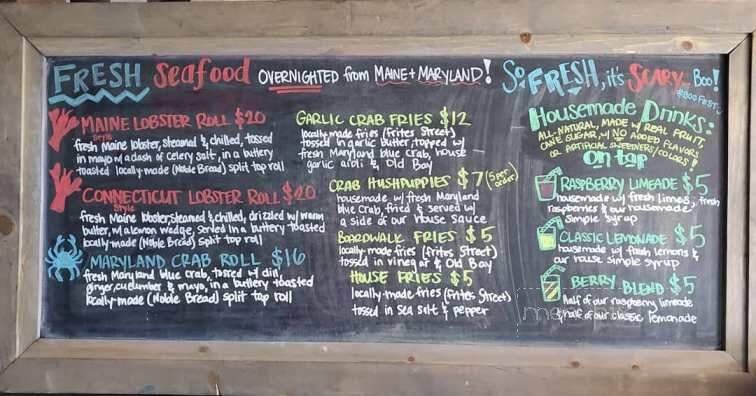 FRESH Seafood OVERNIGHTED from MAINE + MARYLAND!
MAINE LOBSTER ROLL $20
Style
fresh Maine lobster, steamed & chilled, tossed
in mayo w/ a dash of celery salt, in a buttery
toasted locally-made (Noble Bread) split top roll
CONNECTICUT LOBSTER ROLL $20
Style
fresh Maine lobster, steamed & chilled, drizzled w/ warm
butter, w/ a lemon wedge, served in a buttery toasted
locally-made (Noble Bread) split top roll
MARYLAND CRAB ROLL $16
fresh Maryland blue crab, tossed w/ dill
ginger, cucumber & mayo, in a buttery toasted
locally-made (Noble Bread) split top roll
GARLIC CRAB FRIES $12
locally-made fries (Frites Street)
tossed in garlic butter, topped w/
fresh Maryland blue crab, house
garlic aioli & Old Bay
CRAB HUSHPUPPIES $7 (5 per order)
housemade w/ fresh Maryland
blue crab, fried & served w/
a side of our house sauce
BOARDWALK FRIES $5
locally-made fries (Frites Street)
tossed in vinegar & Old Bay
HOUSE FRIES $5
locally-made fries (Frites Street)
tossed in sea salt & pepper
So FRESH, it's SCARY... Boo!
#BOOFEST
Housemade Drinks:
ALL-NATURAL, MADE w/ REAL FRUIT,
CANE SUGAR, w/ NO ADDED FLAVORS
OR ARTIFICIAL SWEETENERS/COLORS!
on tap
RASPBERRY LIMEADE $5
housemade w/ fresh limes, fresh
raspberries & our housemade
simple syrup
CLASSIC LEMONADE $5
housemade w/ fresh lemons &
our house simple syrup
BERRY BLEND $5
half of our raspberry limeade
& half of our classic lemonade